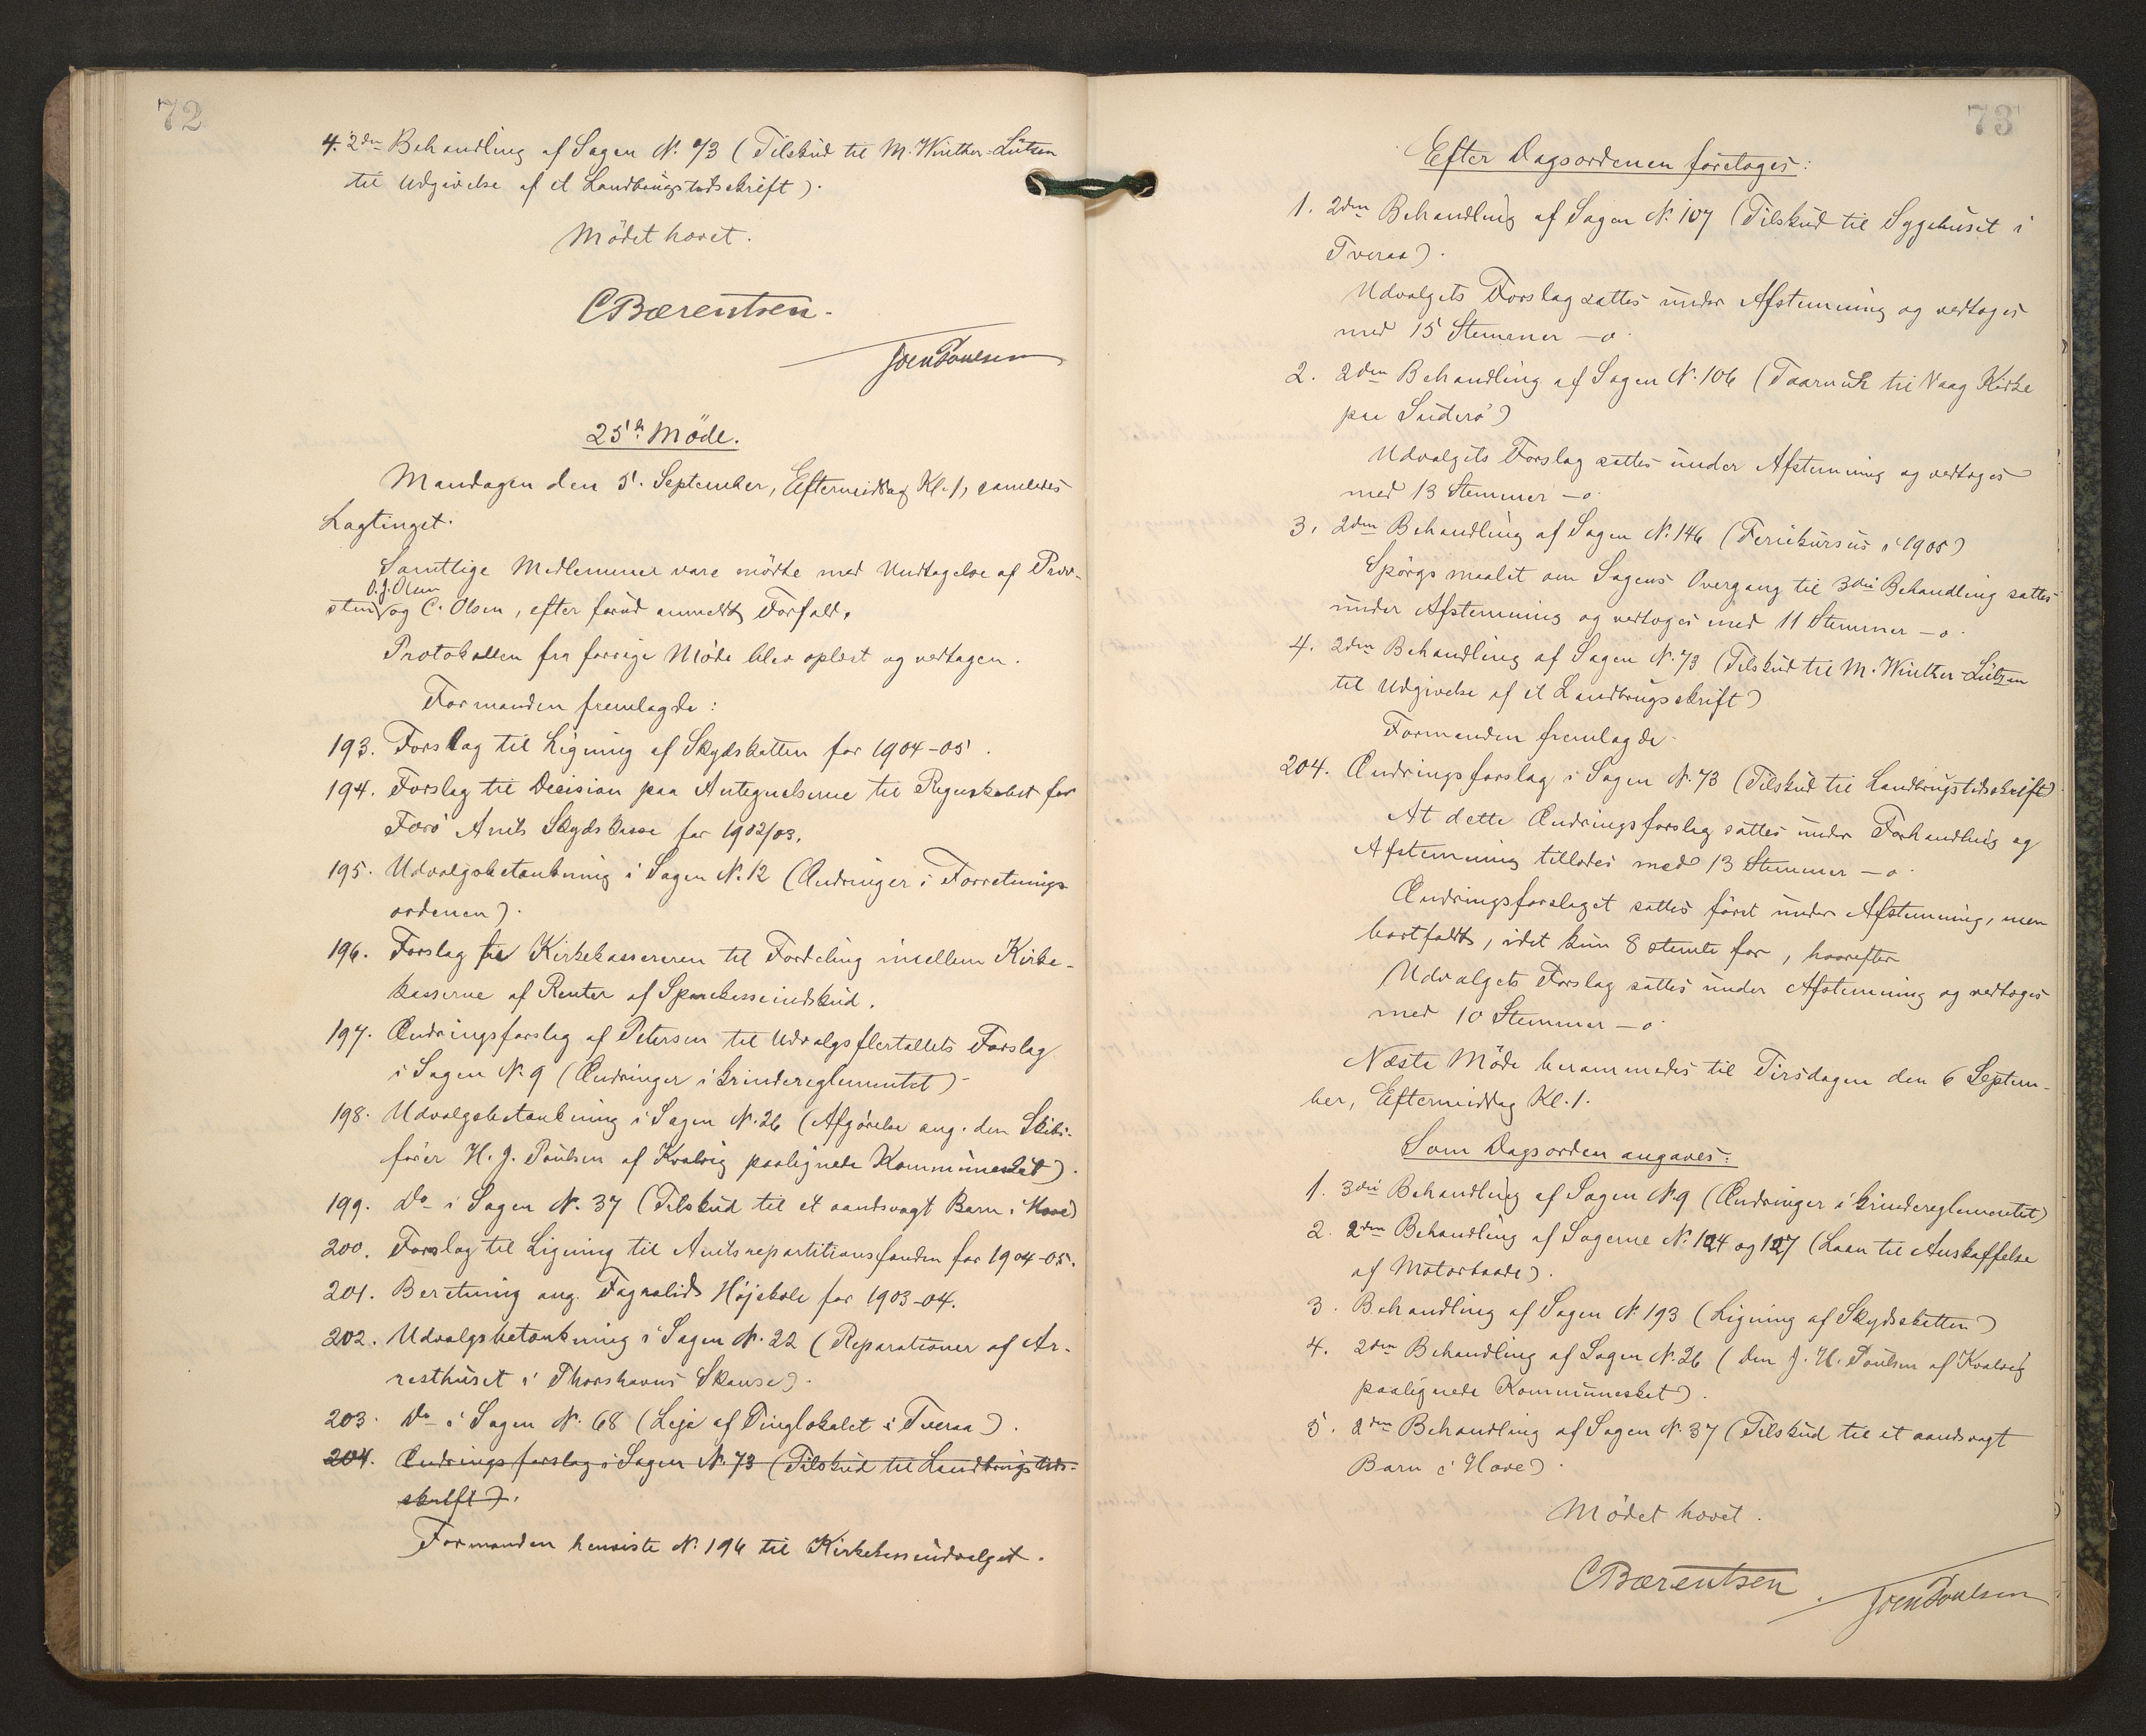 72
4. 2den Behandling af Sagen N. 73 (Tilskud til M. Winther-Lützen
til Udgivelse af et Landbrugstidsskrift).
Mödet hævet.
C Bærentsen.
Joen Poulsen
25de Möde.
Mandagen den 5. September, Eftermiddag Kl. 1, samledes
Lagtinget.
Samtlige Medlemmer vare mödte med Undtagelse af Prov-
O. J. Olsen
sten og C. Olsen, efter forud anmeldt Forfald.
Protokollen fra forrige Möde blev oplæst og vedtagen.
Formanden fremlagde:
193. Forslag til Ligning af Skydsskatten for 1904-05.
194. Forslag til Decision paa Antegnelserne til Regnskabet for
Færö Amts Skydskasse for 1902/03.
195. Udvalgsbetænkning i Sagen N. 12 (Ændringer i Forretnings-
ordenen).
196. Forslag fra Kirkekassereren til Fordeling mellem Kirke-
kasserne af Renter af Sparekasseindskud.
197. Ændringsforslag af Petersen til Udvalgsflertallets Forslag
i Sagen N. 9 (Ændringer i Grindereglementet).
198. Udvalgsbetænkning i Sagen N. 26 (Afgörelse ang. den Skibs-
förer H. J. Poulsen af Kvalvig paalignede Kommuneskat).
199. Do i Sagen N. 37 (Tilskud til et aandsvagt Barn i Hove)
200. Forslag til Ligning til Amtsrepartitionsfonden for 1904-05.
201. Beretning ang. Fagralids Höjskole for 1903-04.
202. Udvalgsbetænkning i Sagen N. 22 (Reparationer af Ar-
resthuset i Thorshavns Skanse).
203. Do i Sagen N. 68 (Leje af Tinglokalet i Tveraa).
204. Ændringsforslag i Sagen N. 73 (Tilskud til Landbrugstids-
skrift).
Formanden henviste N. 196 til Kirkekasseudvalget.
73
Efter Dagsordenen foretoges:
1. 2den Behandling af Sagen N. 107 (Tilskud til Sygehuset i
Tveraa).
Udvalgets Forslag sattes under Afstemning og vedtoges
med 15 Stemmer – o.
2. 2den Behandling af Sagen N. 106 (Taarnuhr til Vaag Kirke
paa Suderö)
Udvalgets Forslag sattes under Afstemning og vedtoges
med 13 Stemmer – o.
3. 2den Behandling af Sagen N. 146 (Feriekursus i 1905)
Spörgsmaalet om Sagens Overgang til 3die Behandling sattes
under Afstemning og vedtoges med 11 Stemmer – o.
4. 2den Behandling af Sagen N. 73 (Tilskud til M. Winther-Lützen
til Udgivelse af et Landbrugsskrift)
Formanden fremlagde
204. Ændringsforslag i Sagen N. 73 (Tilskud til Landbrugstidsskrift)
At dette Ændringsforslag sattes under Forhandling og
Afstemning tillodes med 13 Stemmer – o.
Ændringsforslaget sattes först under Afstemning, men
bortfaldt, idet kun 8 stemte for, hvorefter
Udvalgets Forslag sattes under Afstemning og vedtoges
med 10 Stemmer – o.
Næste Möde berammedes til Tirsdagen den 6 Septem-
ber, Eftermiddag Kl. 1.
Som Dagsorden angaves:
1. 3die Behandling af Sagen N. 9 (Ændringer i Grindereglementet)
2. 2den Behandling af Sagerne N. 124 og 127 (Laan til Anskaffelse
af Motorbaade).
3. Behandling af Sagen N. 193 (Ligning af Skydsskatten)
4. 2den Behandling af Sagen N. 26 (den J. H. Poulsen af Kvalvig
paalignede Kommuneskat).
5. 2den Behandling af Sagen N. 37 (Tilskud til et aandsvagt
Barn i Hove).
Mödet hævet.
C Bærentsen
Joen Poulsen